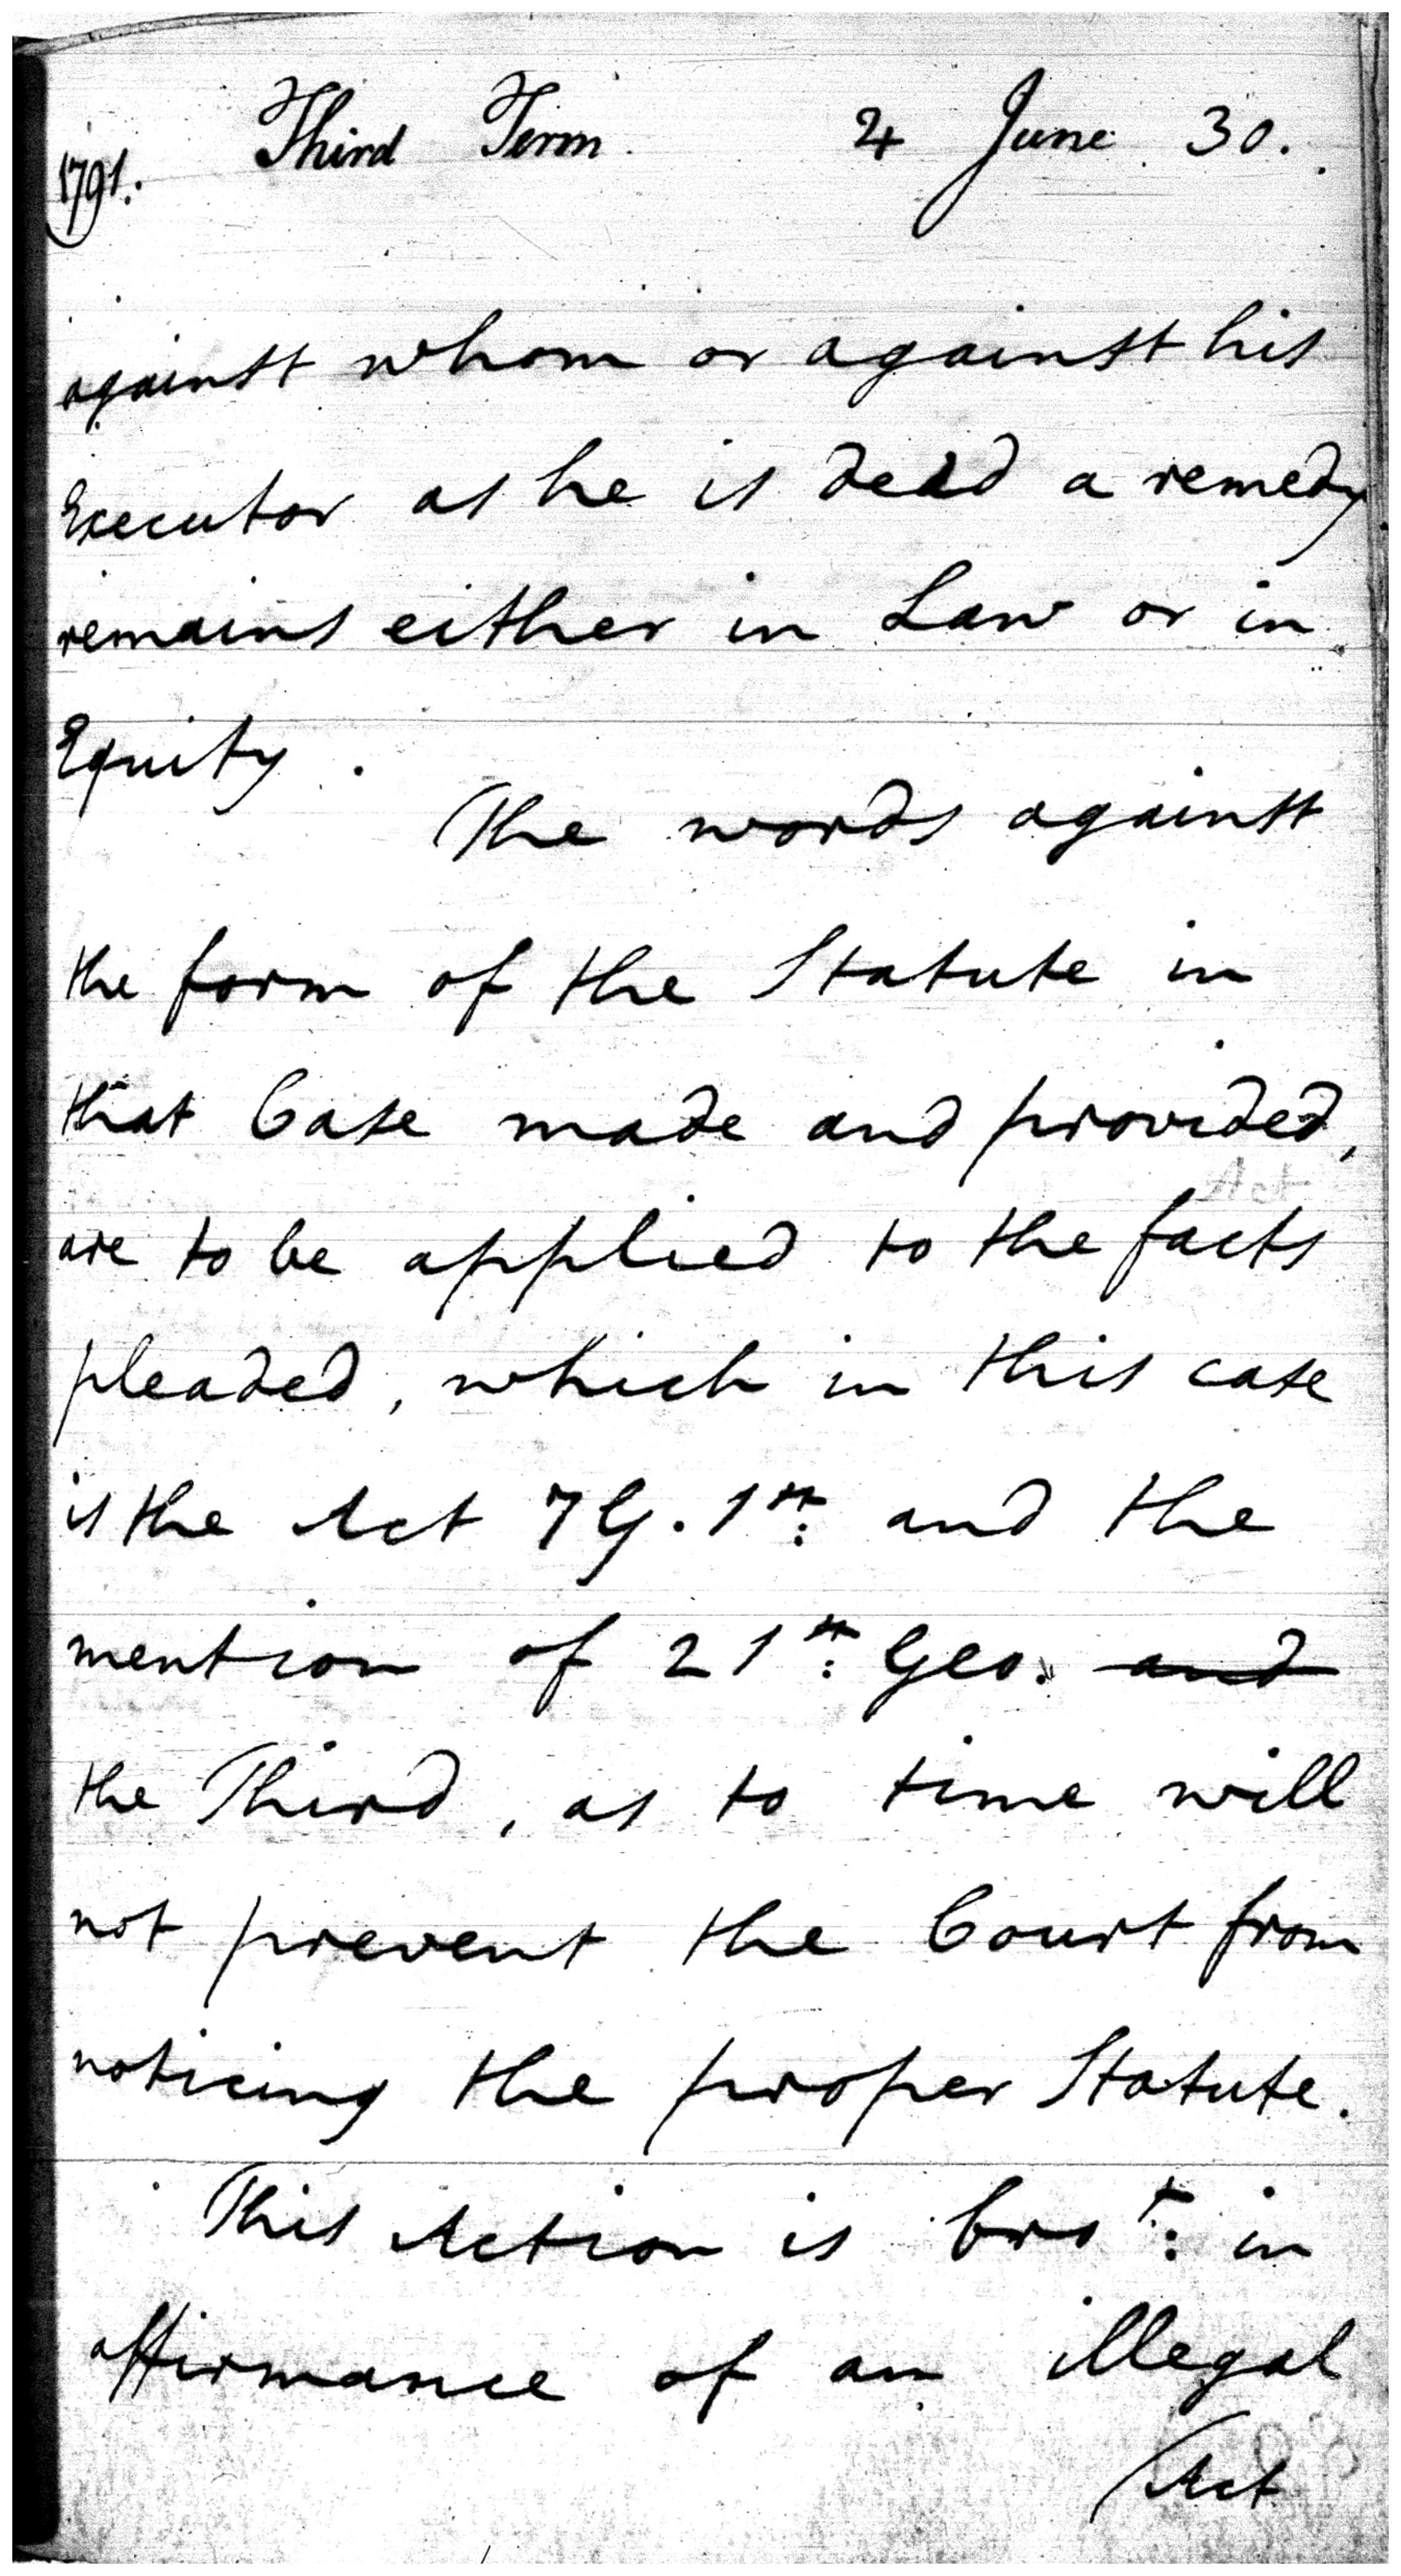 1791. Third Term. 4 June 30.
against whom or against his
Executor as he is dead a remedy
remains either in Law or in
Equity.
The words against
the form of the Statute in
that Case made and provided,
Act
are to be applied to the facts
pleaded, which in this case
is the Act 7 G. 1st: and the
mention of 21st: Geo. and
the Third, as to time will
not prevent the Court from
noticing the proper Statute.
This Action is brot: in
affirmance of an illegal
Act